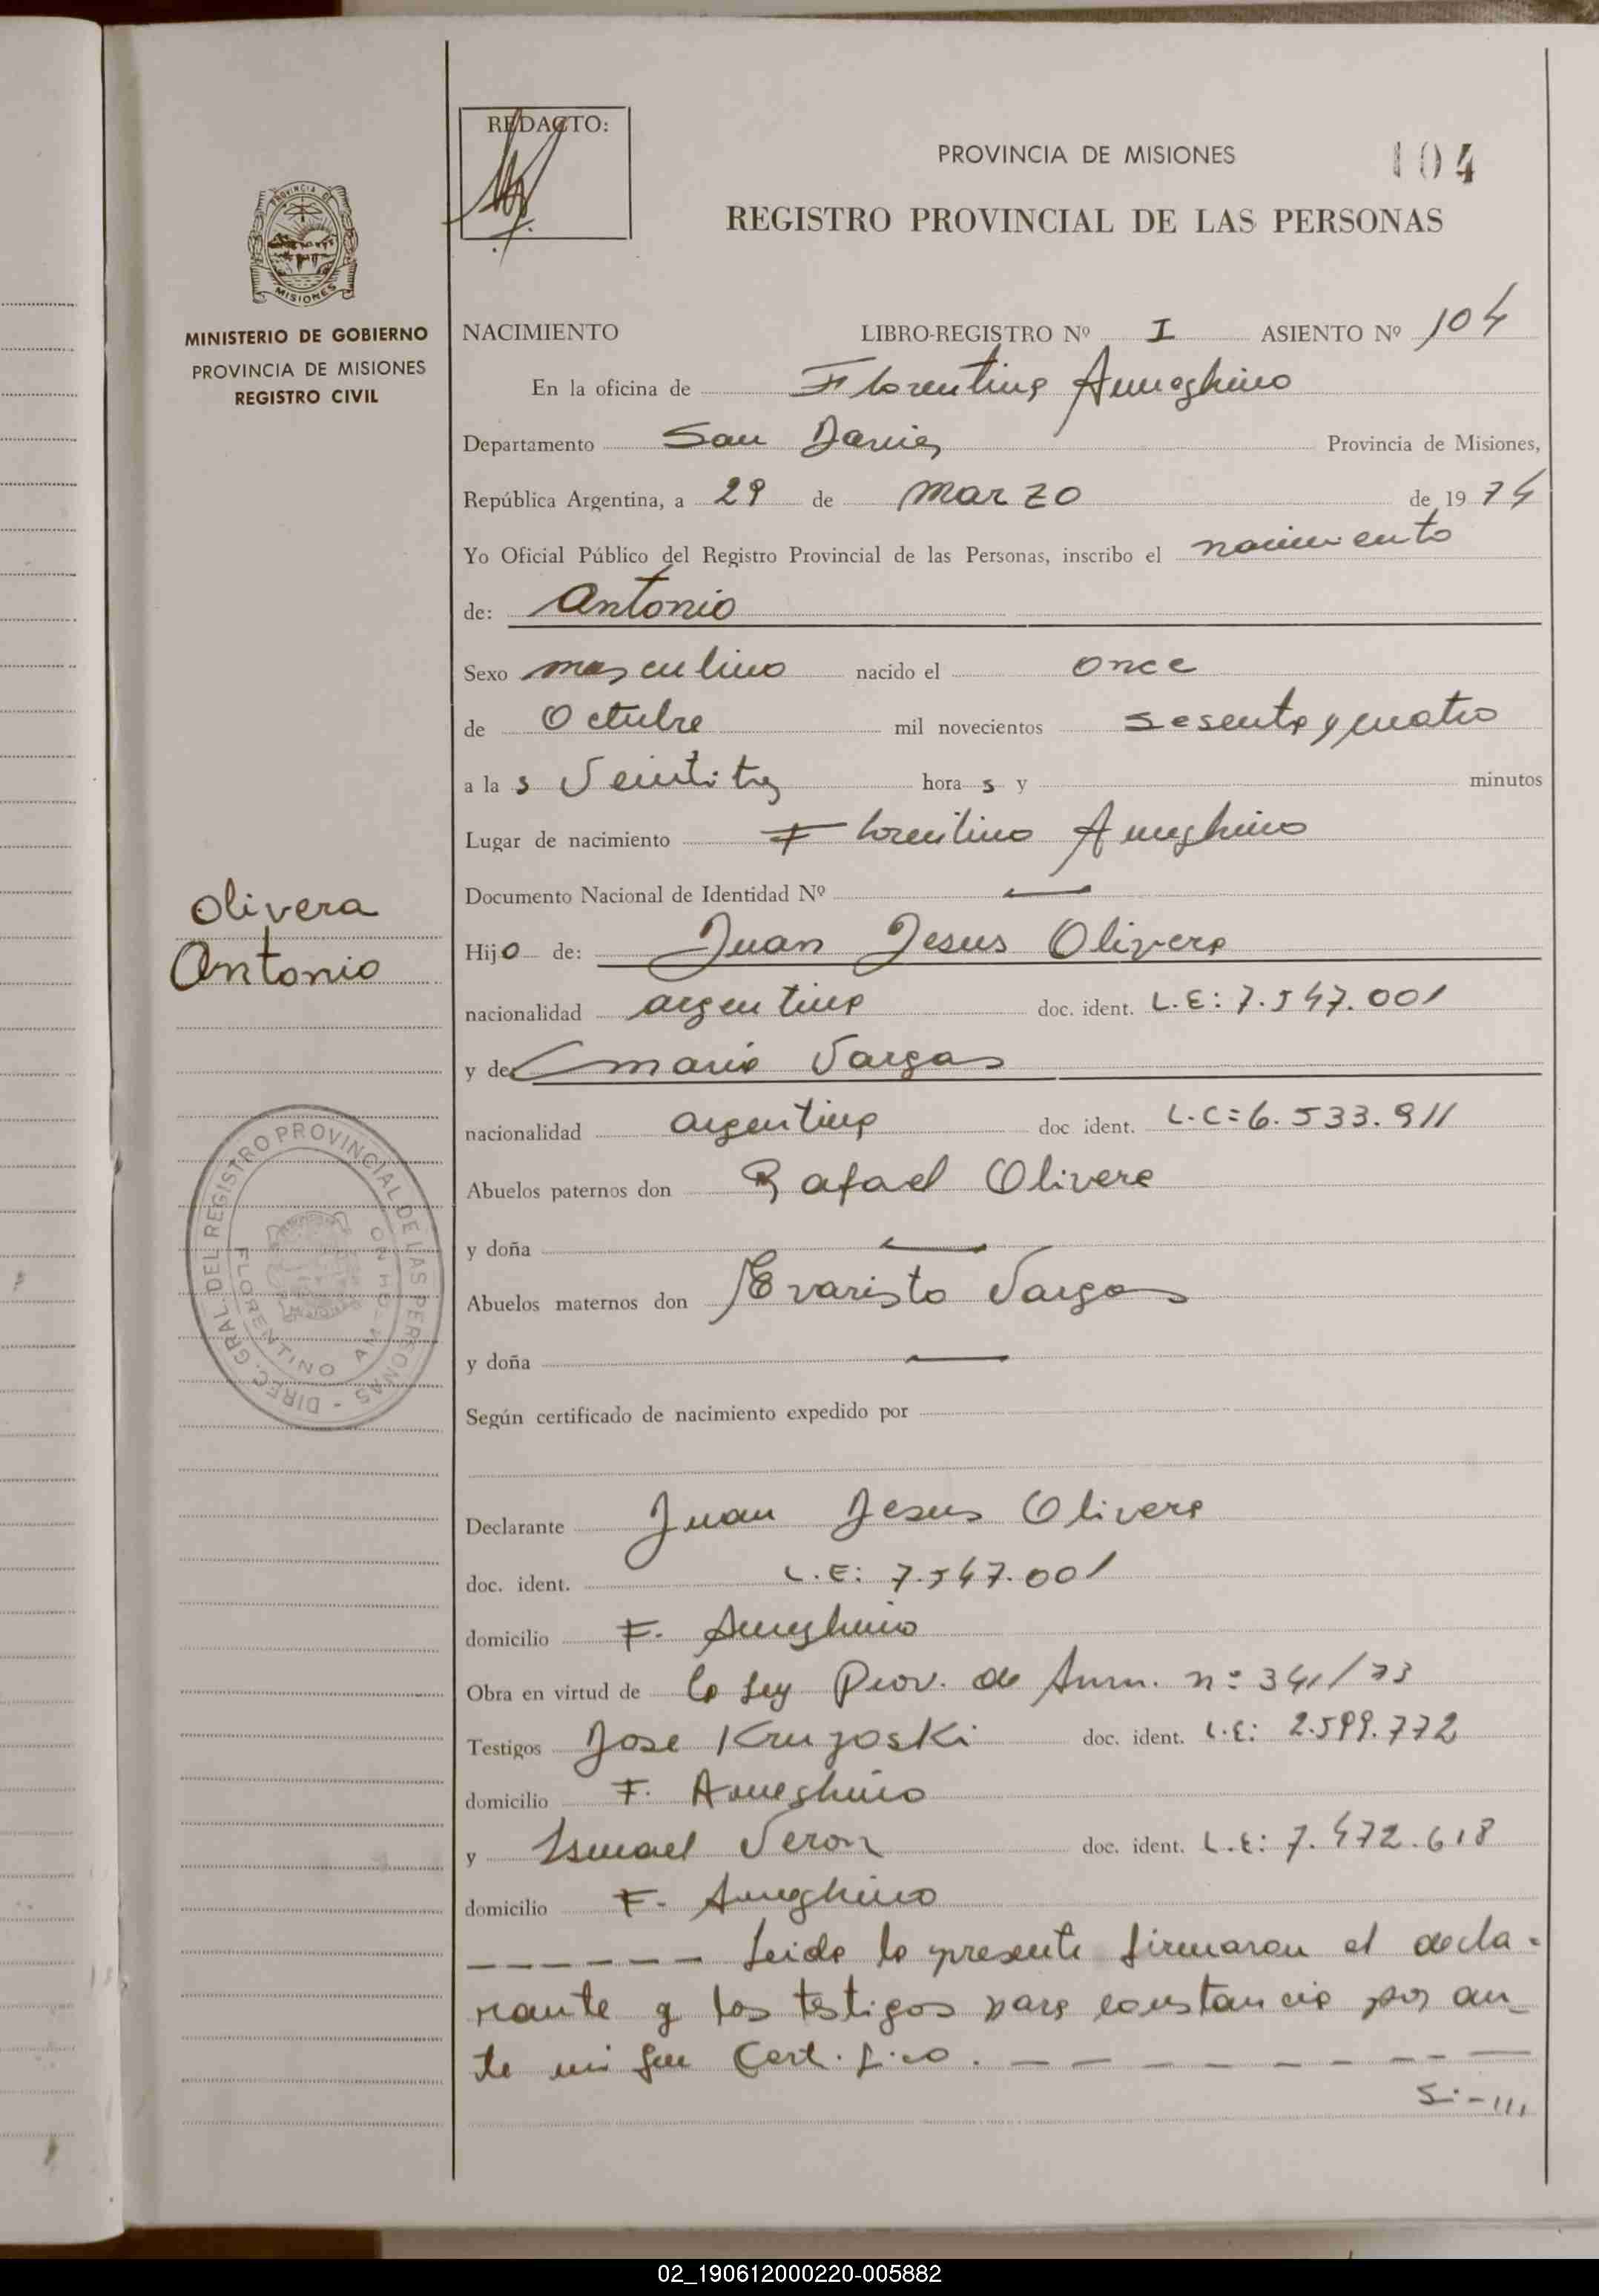 REDACTO:
PROVINCIA DE MISIONES 104
REGISTRO PROVINCIAL DE LAS PERSONAS
PROVINCIA DE MISIONES
MINISTERIO DE GOBIERNO
PROVINCIA DE MISIONES
REGISTRO CIVIL
NACIMIENTO LIBRO-REGISTRO Nº I ASIENTO Nº 104
En la oficina de Florentino Ameghino
Departamento San Javier Provincia de Misiones,
República Argentina, a 29 de Marzo de 1974
Yo Oficial Público del Registro Provincial de las Personas, inscribo el nacimiento
de: Antonio
Sexo masculino nacido el once
de Octubre mil novecientos sesenta y cuatro
a las Veintitres horas y minutos
Lugar de nacimiento Florentino Ameghino
Documento Nacional de Identidad Nº —
Olivera
Antonio
Hijo de: Juan Jesus Olivera
nacionalidad argentina doc. ident. L.E: 7.547.001
y de Maria Vargas
nacionalidad argentina doc ident. L.C=6.533.911
Abuelos paternos don Rafael Olivera
y doña —
Abuelos maternos don Evaristo Vargas
y doña —
DIREC. GRAL. DEL REGISTRO PROVINCIAL DE LAS PERSONAS -
FLORENTINO AMEGHINO
Según certificado de nacimiento expedido por
Declarante Juan Jesus Olivera
doc. ident. L.E: 7.547.001
domicilio F. Ameghino
Obra en virtud de la Ley Prov. de Amn. nº 341/73
Testigos Jose Kruzoski doc. ident. L.E: 2.599.772
domicilio F. Ameghino
y Ismael Veron doc. ident. L.E: 7.472.618
domicilio F. Ameghino
— — — — — — Leida la presente firmaron el decla-
rante y los testigos para constancia por an-
te mi que Certifico. — — — — — — — —
S.-///
02_190612000220-005882